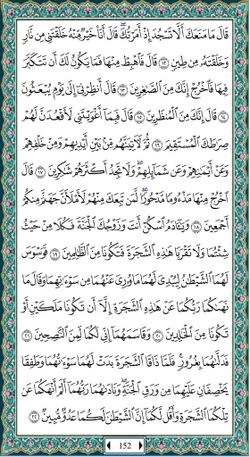 قَالَ مَا مَنَعَكَ أَلَّا تَسْجُدَ إِذْ أَمَرْتُكَ ۖ قَالَ أَنَا۠ خَيْرٌ مِّنْهُ خَلَقْتَنِي مِن نَّارٍ
وَخَلَقْتَهُۥ مِن طِينٍ ١٢ قَالَ فَٱهْبِطْ مِنْهَا فَمَا يَكُونُ لَكَ أَن تَتَكَبَّرَ
فِيهَا فَٱخْرُجْ إِنَّكَ مِنَ ٱلصَّـٰغِرِينَ ١٣ قَالَ أَنظِرْنِيٓ إِلَىٰ يَوْمِ يُبْعَثُونَ
١٤ قَالَ إِنَّكَ مِنَ ٱلْمُنظَرِينَ ١٥ قَالَ فَبِمَآ أَغْوَيْتَنِي لَأَقْعُدَنَّ لَهُمْ
صِرَٰطَكَ ٱلْمُسْتَقِيمَ ١٦ ثُمَّ لَـَٔاتِيَنَّهُم مِّنۢ بَيْنِ أَيْدِيهِمْ وَمِنْ خَلْفِهِمْ
وَعَنْ أَيْمَـٰنِهِمْ وَعَن شَمَآئِلِهِمْ ۖ وَلَا تَجِدُ أَكْثَرَهُمْ شَـٰكِرِينَ ١٧ قَالَ
ٱخْرُجْ مِنْهَا مَذْءُومًا مَّدْحُورًا ۖ لَّمَن تَبِعَكَ مِنْهُمْ لَأَمْلَأَنَّ جَهَنَّمَ مِنكُمْ
أَجْمَعِينَ ١٨ وَيَـٰٓـَٔادَمُ ٱسْكُنْ أَنتَ وَزَوْجُكَ ٱلْجَنَّةَ فَكُلَا مِنْ حَيْثُ
شِئْتُمَا وَلَا تَقْرَبَا هَـٰذِهِ ٱلشَّجَرَةَ فَتَكُونَا مِنَ ٱلظَّـٰلِمِينَ ١٩ فَوَسْوَسَ
لَهُمَا ٱلشَّيْطَـٰنُ لِيُبْدِيَ لَهُمَا مَا وُۥرِيَ عَنْهُمَا مِن سَوْءَٰتِهِمَا وَقَالَ مَا
نَهَىٰكُمَا رَبُّكُمَا عَنْ هَـٰذِهِ ٱلشَّجَرَةِ إِلَّآ أَن تَكُونَا مَلَكَيْنِ أَوْ
تَكُونَا مِنَ ٱلْخَـٰلِدِينَ ٢٠ وَقَاسَمَهُمَآ إِنِّي لَكُمَا لَمِنَ ٱلنَّـٰصِحِينَ ٢١
فَدَلَّىٰهُمَا بِغُرُورٍ ۚ فَلَمَّا ذَاقَا ٱلشَّجَرَةَ بَدَتْ لَهُمَا سَوْءَٰتُهُمَا وَطَفِقَا
يَخْصِفَانِ عَلَيْهِمَا مِن وَرَقِ ٱلْجَنَّةِ ۖ وَنَادَىٰهُمَا رَبُّهُمَآ أَلَمْ أَنْهَكُمَا عَن
تِلْكُمَا ٱلشَّجَرَةِ وَأَقُل لَّكُمَآ إِنَّ ٱلشَّيْطَـٰنَ لَكُمَا عَدُوٌّ مُّبِينٌ ٢٢
152